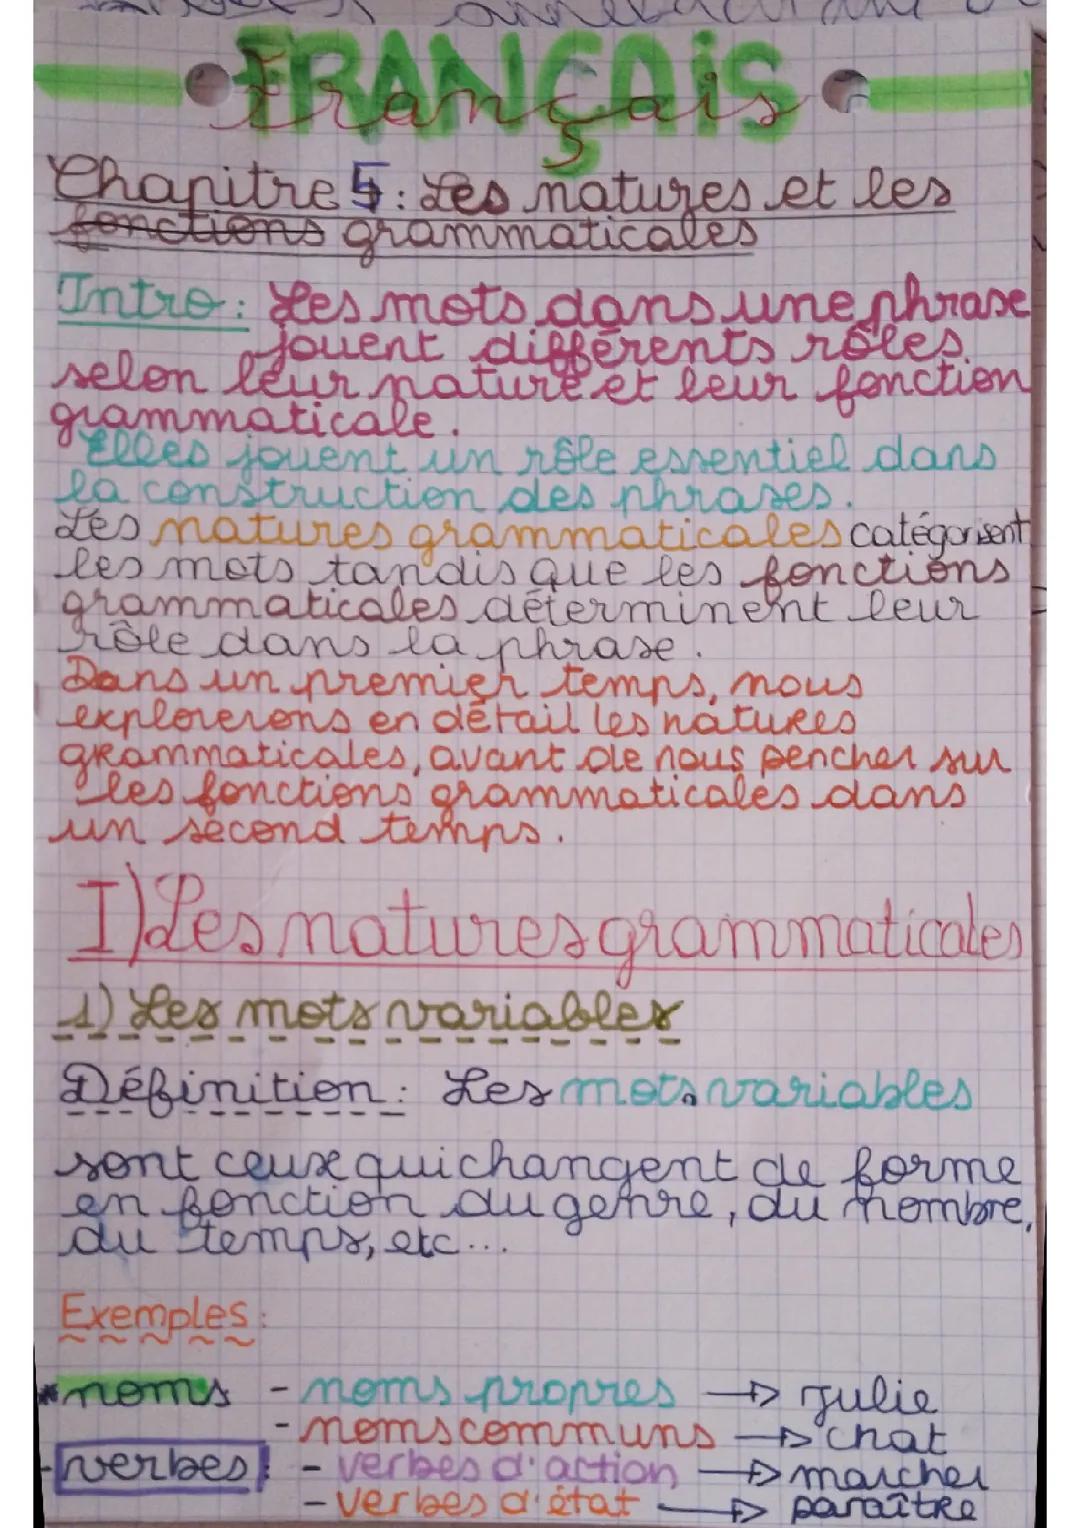 FRANÇAIS
Français
Chapitre 5: Les natures et les
fonctions grammaticales
Intro: Les mots dans une phrase
jouent différents rôles
selon leur nature et leur fonction
grammaticale.
Elles jouent un rôle essentiel dans
la construction des phrases.
Les natures grammaticales catégorisent
les mots tandis que les fonctions
grammaticales déterminent leur
rôle dans la phrase.
Dans un premier temps, nous
explorerons en détail les natures
grammaticales, avant de nous pencher sur
les fonctions grammaticales dans
un second temps.
I) Les natures grammaticales
1) Les mots variables
Définition: Les mots variables
sont ceux qui changent de forme
en fonction du genre, du nombre,
du temps, etc...
Exemples:
*noms - noms propres → Julie
- noms communs → chat
- verbes: - verbes d'action → marcher
- verbes d'état → paraître